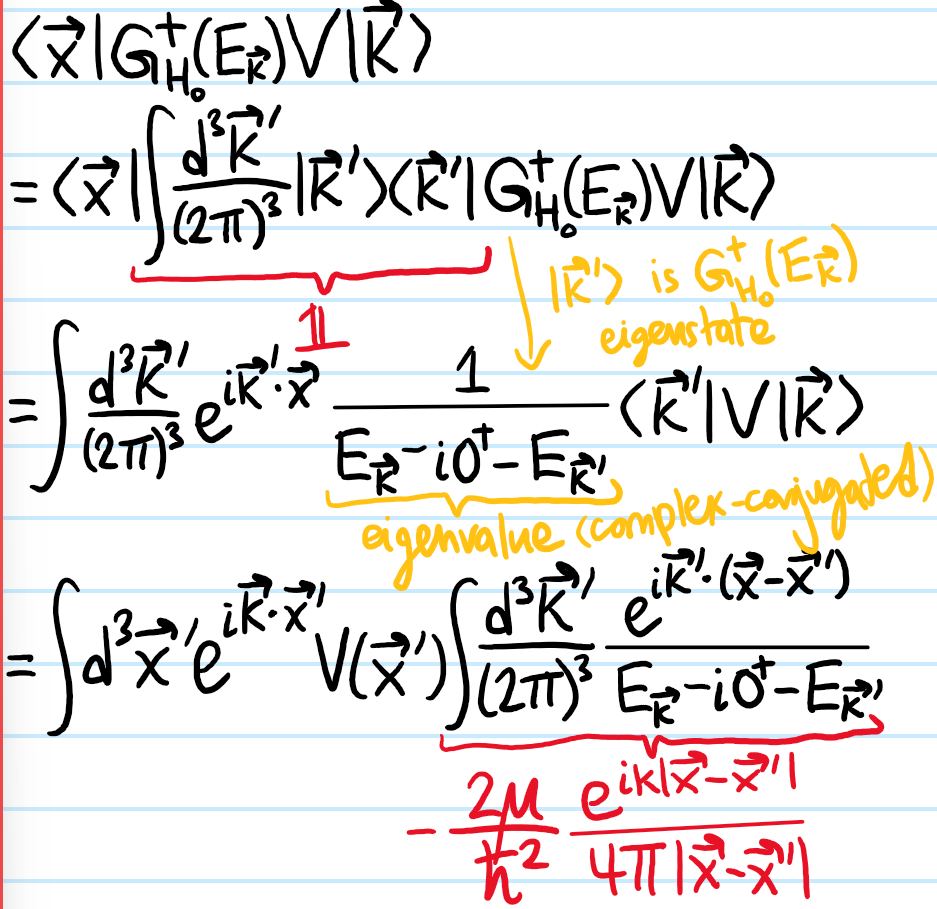 ⟨x⃗|G⁺_{H₀}(E_{k⃗})V|k⃗⟩
= ⟨x⃗|∫ d³k⃗′/(2π)³ |k⃗′⟩⟨k⃗′|G⁺_{H₀}(E_{k⃗})V|k⃗⟩
𝟙
|k⃗′⟩ is G⁺_{H₀}(E_{k⃗})
eigenstate
= ∫ d³k⃗′/(2π)³ e^{ik⃗′·x⃗} 1/(E_{k⃗} - i0⁺ - E_{k⃗′}) ⟨k⃗′|V|k⃗⟩
eigenvalue (complex-conjugated)
= ∫ d³x⃗′ e^{ik⃗·x⃗′} V(x⃗′) ∫ d³k⃗′/(2π)³ e^{ik⃗′·(x⃗-x⃗′)}/(E_{k⃗} - i0⁺ - E_{k⃗′})
- 2μ/ħ² e^{ik|x⃗-x⃗′|}/(4π|x⃗-x⃗′|)